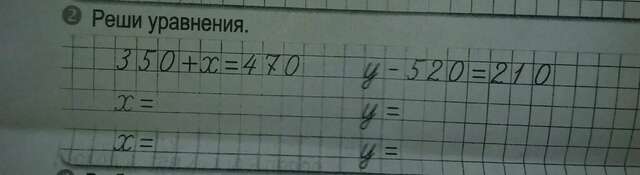 2 Реши уравнения.
350+x=470 y-520=210
x= y=
x= y=